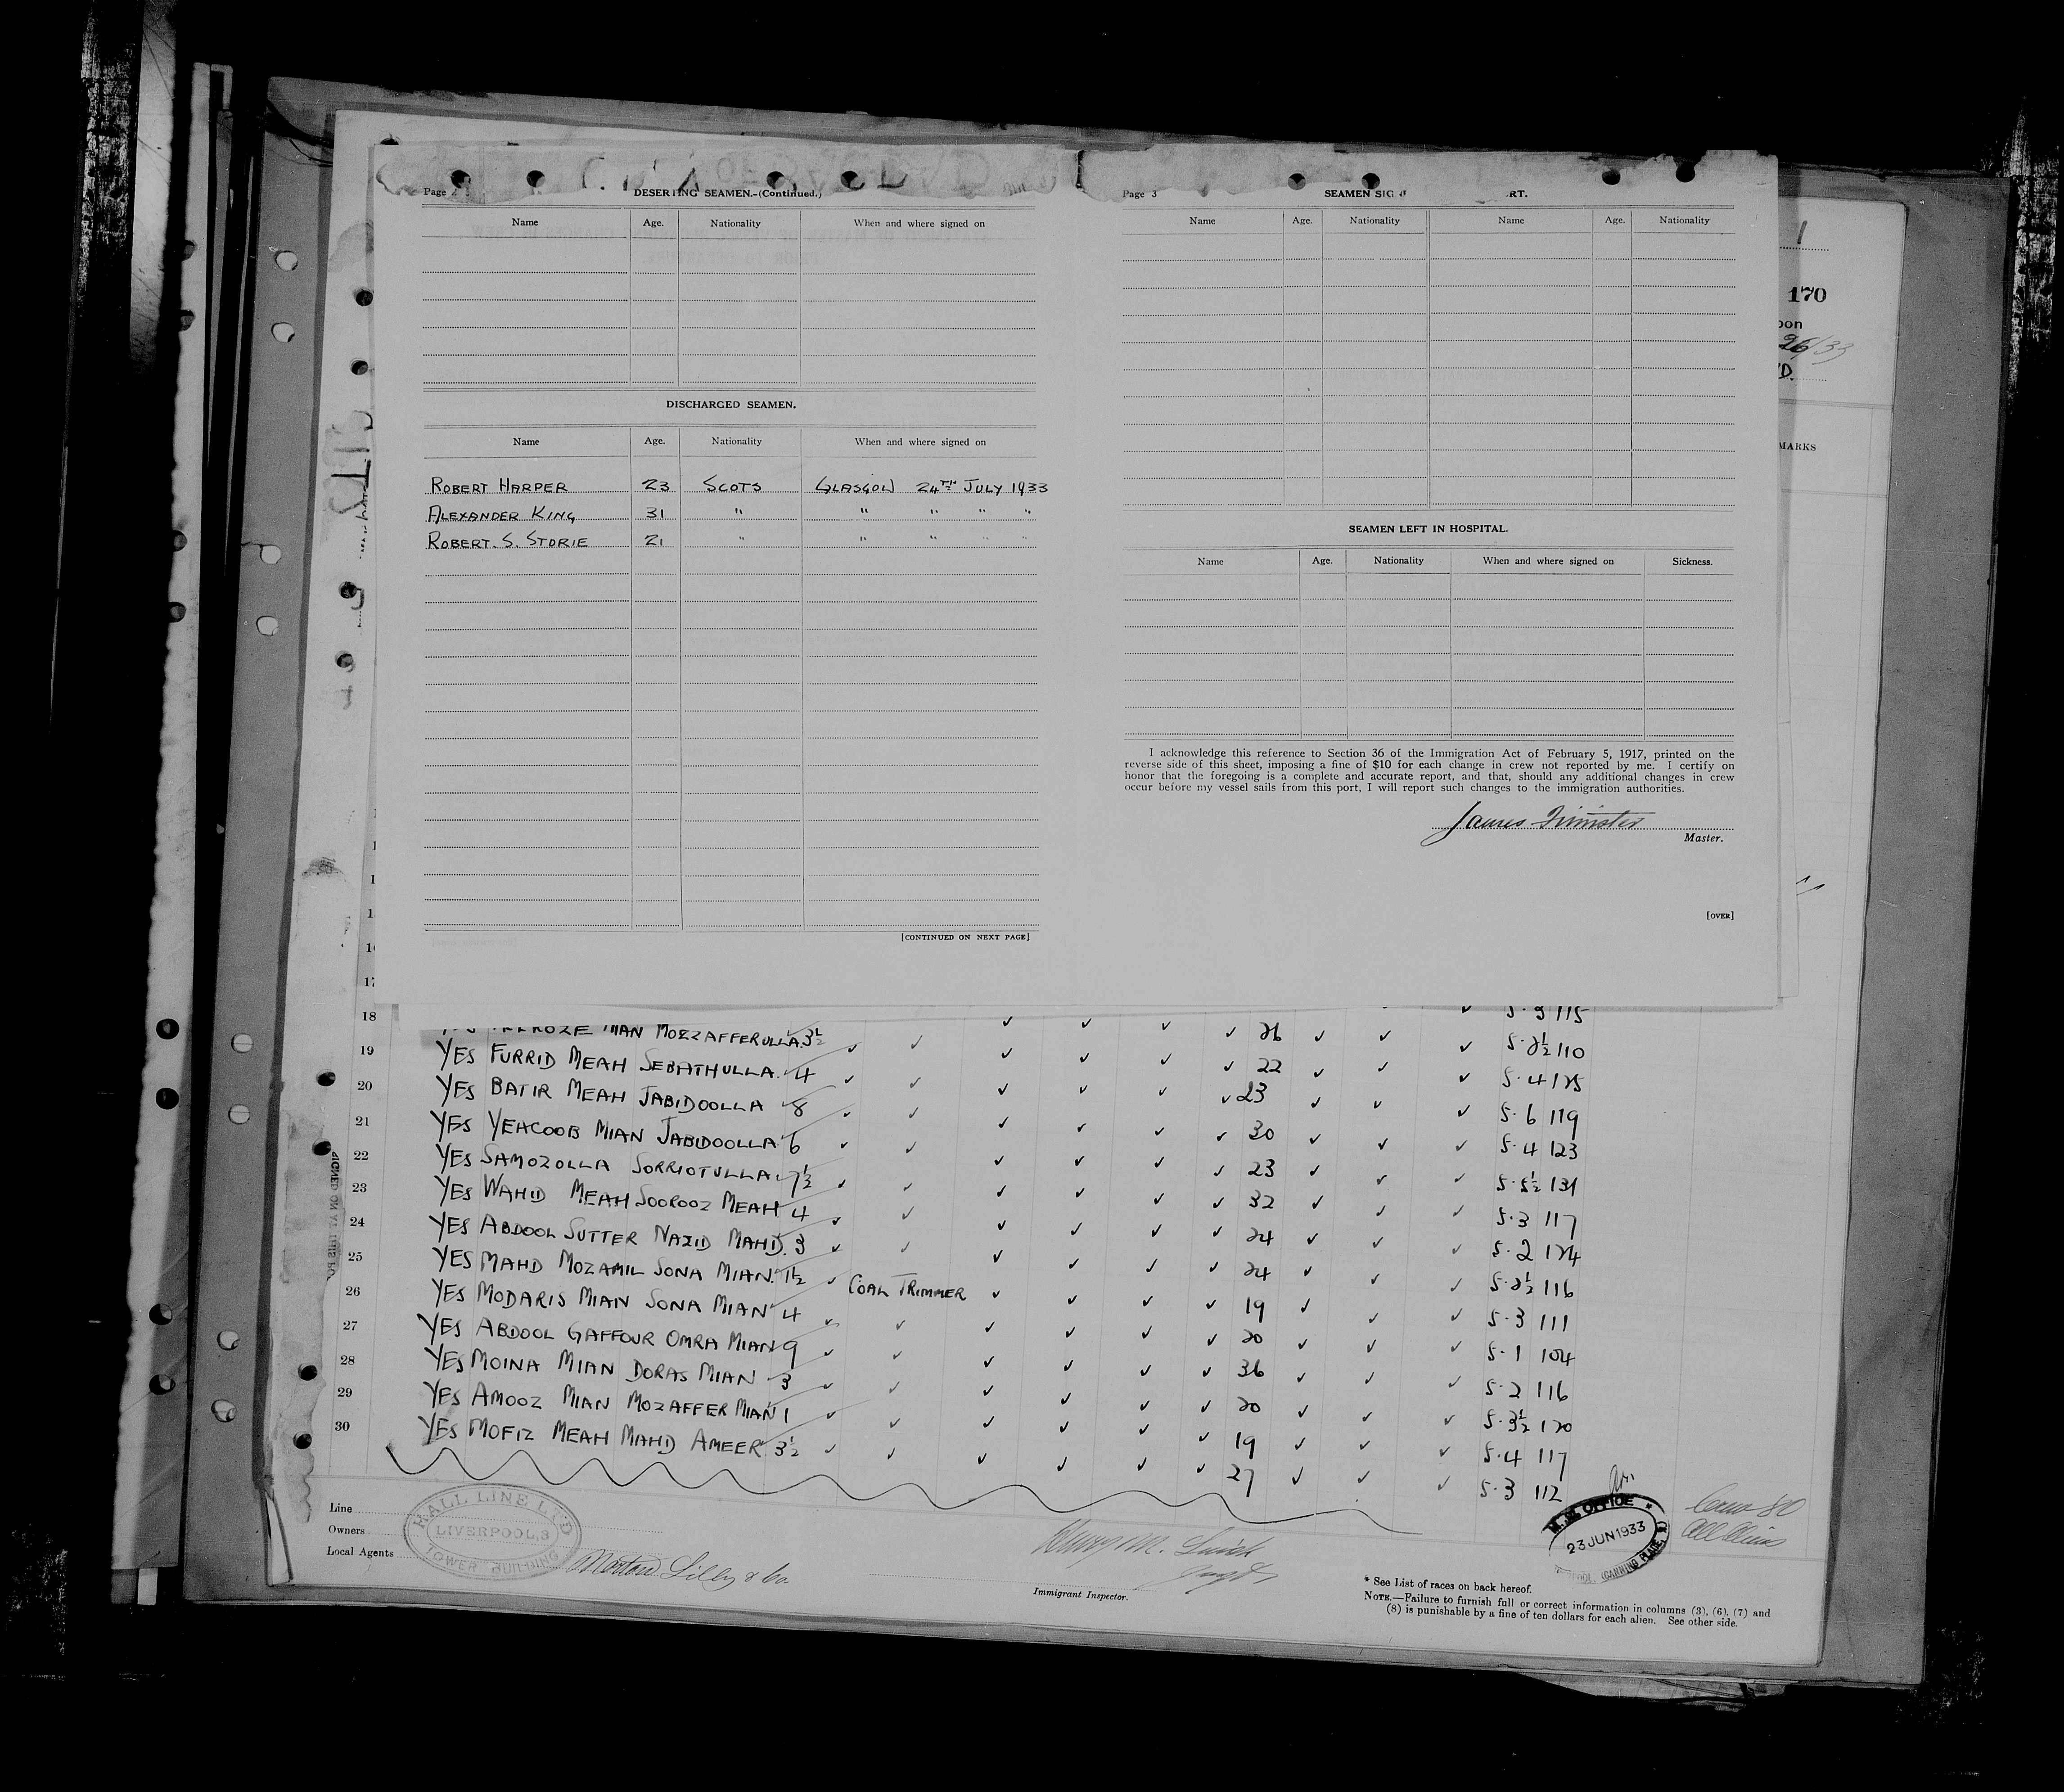 Page
DESERTING SEAMEN.-(Continued.)
Name Age. Nationality When and where signed on
DISCHARGED SEAMEN.
Name Age. Nationality When and where signed on
ROBERT HARPER 23 SCOTS GLASGOW 24TH JULY 1933
ALEXANDER KING 31 " " " " "
ROBERT. S. STORIE 21 " " " " "
[CONTINUED ON NEXT PAGE]
Page 3
SEAMEN SIG RT.
Name Age. Nationality Name Age. Nationality
SEAMEN LEFT IN HOSPITAL.
Name Age. Nationality When and where signed on Sickness.
I acknowledge this reference to Section 36 of the Immigration Act of February 5, 1917, printed on the
reverse side of this sheet, imposing a fine of $10 for each change in crew not reported by me. I certify on
honor that the foregoing is a complete and accurate report, and that, should any additional changes in crew
occur before my vessel sails from this port, I will report such changes to the immigration authorities.
James
Master.
[OVER]
1
170
26/33
MARKS
17
5.3 115
18 MIAN MOZZAFFERULLA. 3½ ✓ ✓ ✓ ✓ ✓ ✓ 26 ✓ ✓ ✓ 5.2½ 110
19 YES FURRID MEAH SEBATHULLA. 4 ✓ ✓ ✓ ✓ ✓ ✓ 22 ✓ ✓ ✓ 5.4 125
20 YES BATIR MEAH JABIDOOLLA 8 ✓ ✓ ✓ ✓ ✓ ✓ 23 ✓ ✓ ✓ 5.6 119
21 YES YEHCOOB MIAN JABIDOOLLA 6 ✓ ✓ ✓ ✓ ✓ ✓ 30 ✓ ✓ ✓ 5.4 123
22 YES SAMOZOLLA SORRIOTULLA 7½ ✓ ✓ ✓ ✓ ✓ ✓ 23 ✓ ✓ ✓ 5.5½ 131
23 YES WAHID MEAH SOOROOZ MEAH 4 ✓ ✓ ✓ ✓ ✓ ✓ 32 ✓ ✓ ✓ 5.3 117
24 YES ABDOOL SUTTER NAZID MAHD. 3 ✓ ✓ ✓ ✓ ✓ ✓ 24 ✓ ✓ ✓ 5.2 124
25 YES MAHD MOZAMIL SONA MIAN. 1½ ✓ COAL TRIMMER ✓ ✓ ✓ ✓ 24 ✓ ✓ ✓ 5.2½ 116
26 YES MODARIS MIAN SONA MIAN 4 ✓ ✓ ✓ ✓ ✓ ✓ 19 ✓ ✓ ✓ 5.3 111
27 YES ABDOOL GAFFOUR OMRA MIAN 9 ✓ ✓ ✓ ✓ ✓ ✓ 20 ✓ ✓ ✓ 5.1 104
28 YES MOINA MIAN DORAS MIAN 3 ✓ ✓ ✓ ✓ ✓ ✓ 36 ✓ ✓ ✓ 5.2 116
29 YES AMOOZ MIAN MOZAFFER MIAN 1 ✓ ✓ ✓ ✓ ✓ ✓ 20 ✓ ✓ ✓ 5.3½ 120
30 YES MOFIZ MEAH MAHD AMEER 3½ ✓ ✓ ✓ ✓ ✓ ✓ 19 ✓ ✓ ✓ 5.4 117
27 ✓ ✓ ✓ 5.3 112
Line
Owners
Local Agents
HALL LINE LTD
LIVERPOOL,3
TOWER BUILDING
Morton Lilly & Co.
Immigrant Inspector.
OFFICE
23 JUN 1933
CANNING PLACE
* See List of races on back hereof.
NOTE.—Failure to furnish full or correct information in columns (3), (6), (7) and
(8) is punishable by a fine of ten dollars for each alien. See other side.